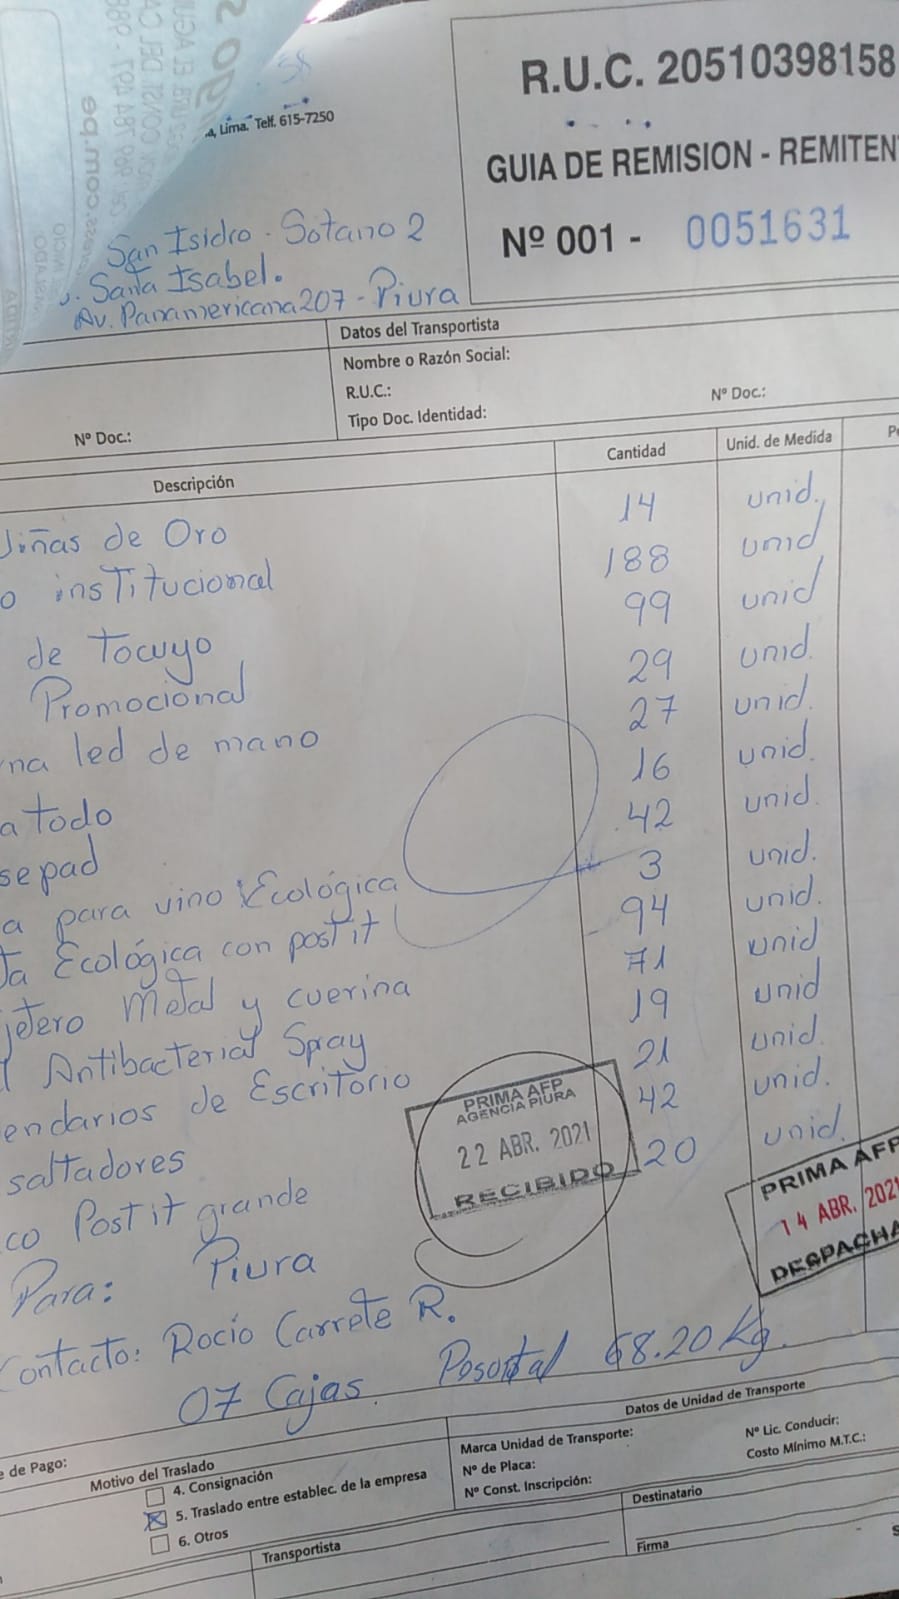 R.U.C. 20510398158
Lima. Telf. 615-7250
GUIA DE REMISION - REMITEN
Nº 001 - 0051631
San Isidro - Sotano 2
Santa Isabel.
Av. Panamericana 207 - Piura
Datos del Transportista
Nombre o Razón Social:
R.U.C.:
Tipo Doc. Identidad: Nº Doc.:
Nº Doc.:
Descripción Cantidad Unid. de Medida
de Oro 14 unid.
o institucional 188 unid
de Tocuyo 99 unid
Promocional 29 unid.
na led de mano 27 unid.
a todo 16 unid.
sepad 42 unid.
a para vino Ecológica 3 unid.
ta Ecológica con post it 94 unid.
jetero Metal y cuerina 71 unid
l Antibacterial Spray 19 unid
endarios de Escritorio 21 unid.
saltadores 42 unid.
co Post it grande 20 unid.
PRIMA AFP
AGENCIA PIURA
22 ABR. 2021
RECIBIDO
PRIMA AFP
14 ABR. 2021
DESPACHA
Para: Piura
Contacto: Rocio Carrete R.
07 Cajas 68.20 Kg.
e de Pago:
Motivo del Traslado
4. Consignación
5. Traslado entre establec. de la empresa
6. Otros
Datos de Unidad de Transporte
Marca Unidad de Transporte: Nº Lic. Conducir:
Nº de Placa: Costo Mínimo M.T.C.:
Nº Const. Inscripción:
Transportista
Destinatario
Firma